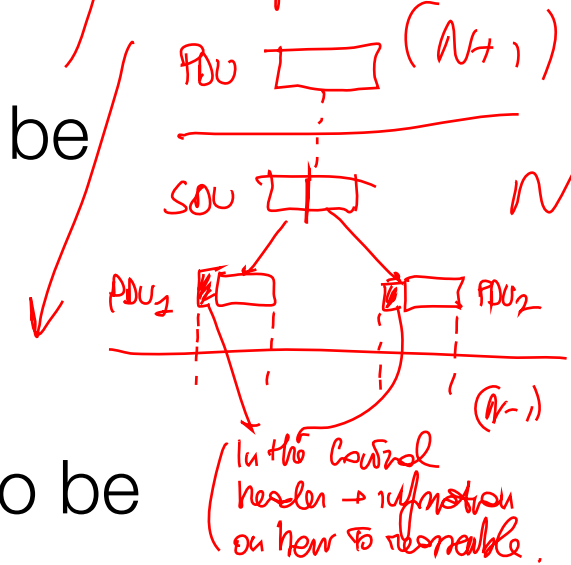 PDU (N+1)
be
SDU N
PDU1 PDU2
(N-1)
In the control
o be
header → information
on how to reassemble.